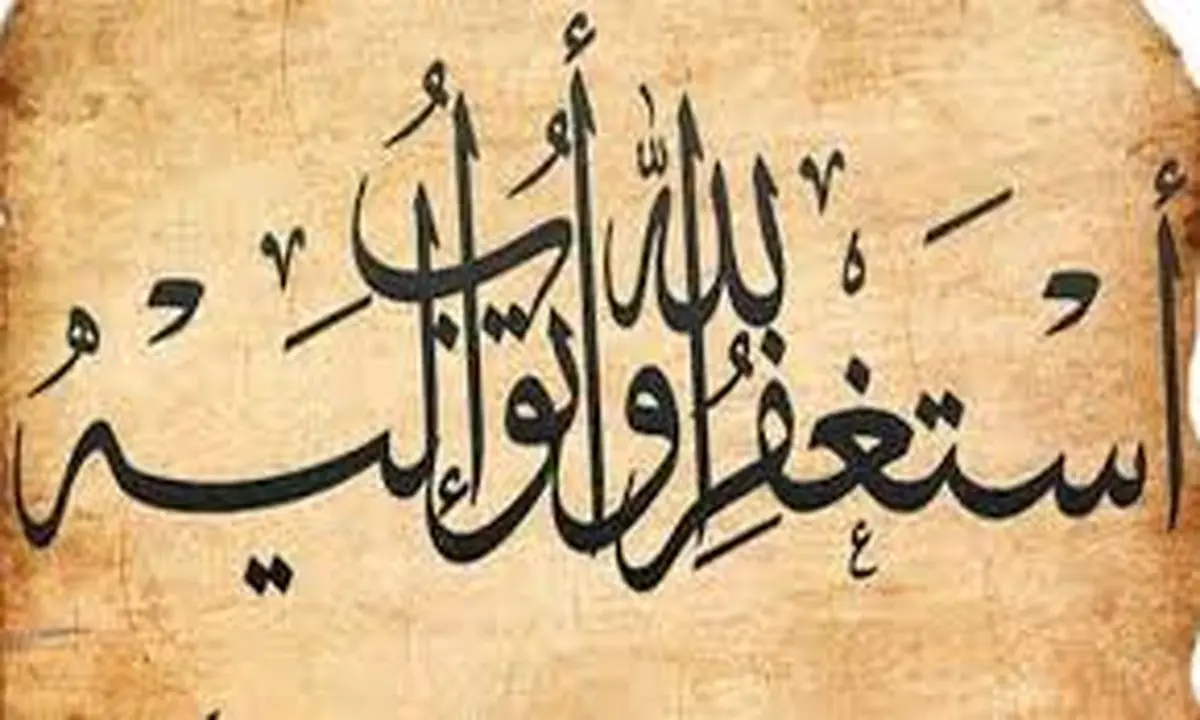 أَسْتَغْفِرُ اللّٰه وَأَتُوبُ إِلَيْهُ